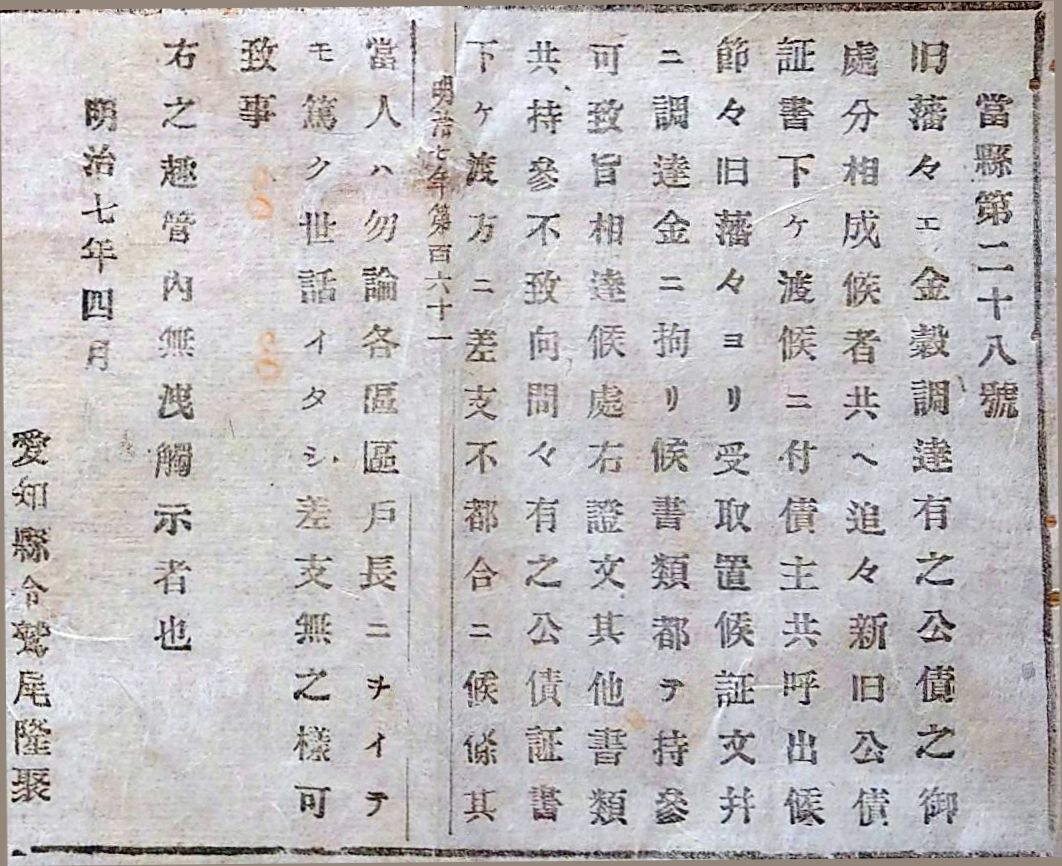 當縣第二十八號
旧藩々エ金穀調達有之公債之御
處分相成候者共ヘ追々新旧公債
証書下ケ渡候ニ付債主共呼出候
節々旧藩々ヨリ受取置候証文并
ニ調達金ニ拘リ候書類都テ持參
可致旨相達候處右證文其他書類
共持參不致向間々有之公債証書
下ケ渡方ニ差支不都合ニ候條其
明治七年第百六十一
當人ハ勿論各區區戶長ニヲイテ
モ篤ク世話イタシ差支無之樣可
致事
右之趣管內無洩觸示者也
明治七年四月
愛知縣令鷲尾隆聚